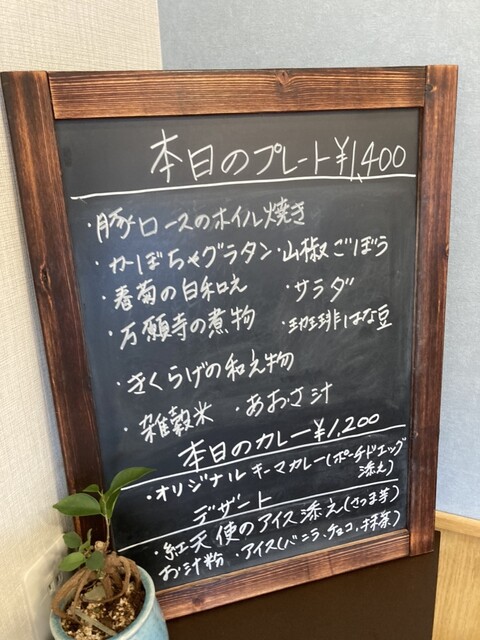 本日のプレート ¥1,400
・豚ロースのホイル焼き
・かぼちゃグラタン ・山椒ごぼう
・春菊の白和え ・サラダ
・万願寺の煮物 ・珈琲はな豆
・きくらげの和え物
・雑穀米 ・あおさ汁
本日のカレー ¥1,200
・オリジナルキーマカレー(ポーチドエッグ
添え)
デザート
・紅天使のアイス添え(さつま芋)
・アイス(バニラ、チョコ、抹茶)